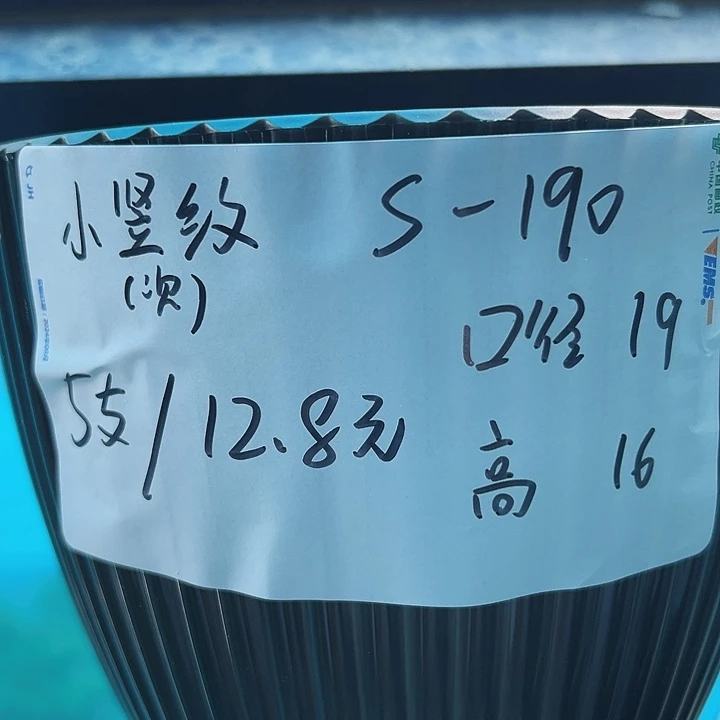 小竖纹 S-190
(次)
口径 19
5支/12.8元
高 16
CHINA POST
EMS